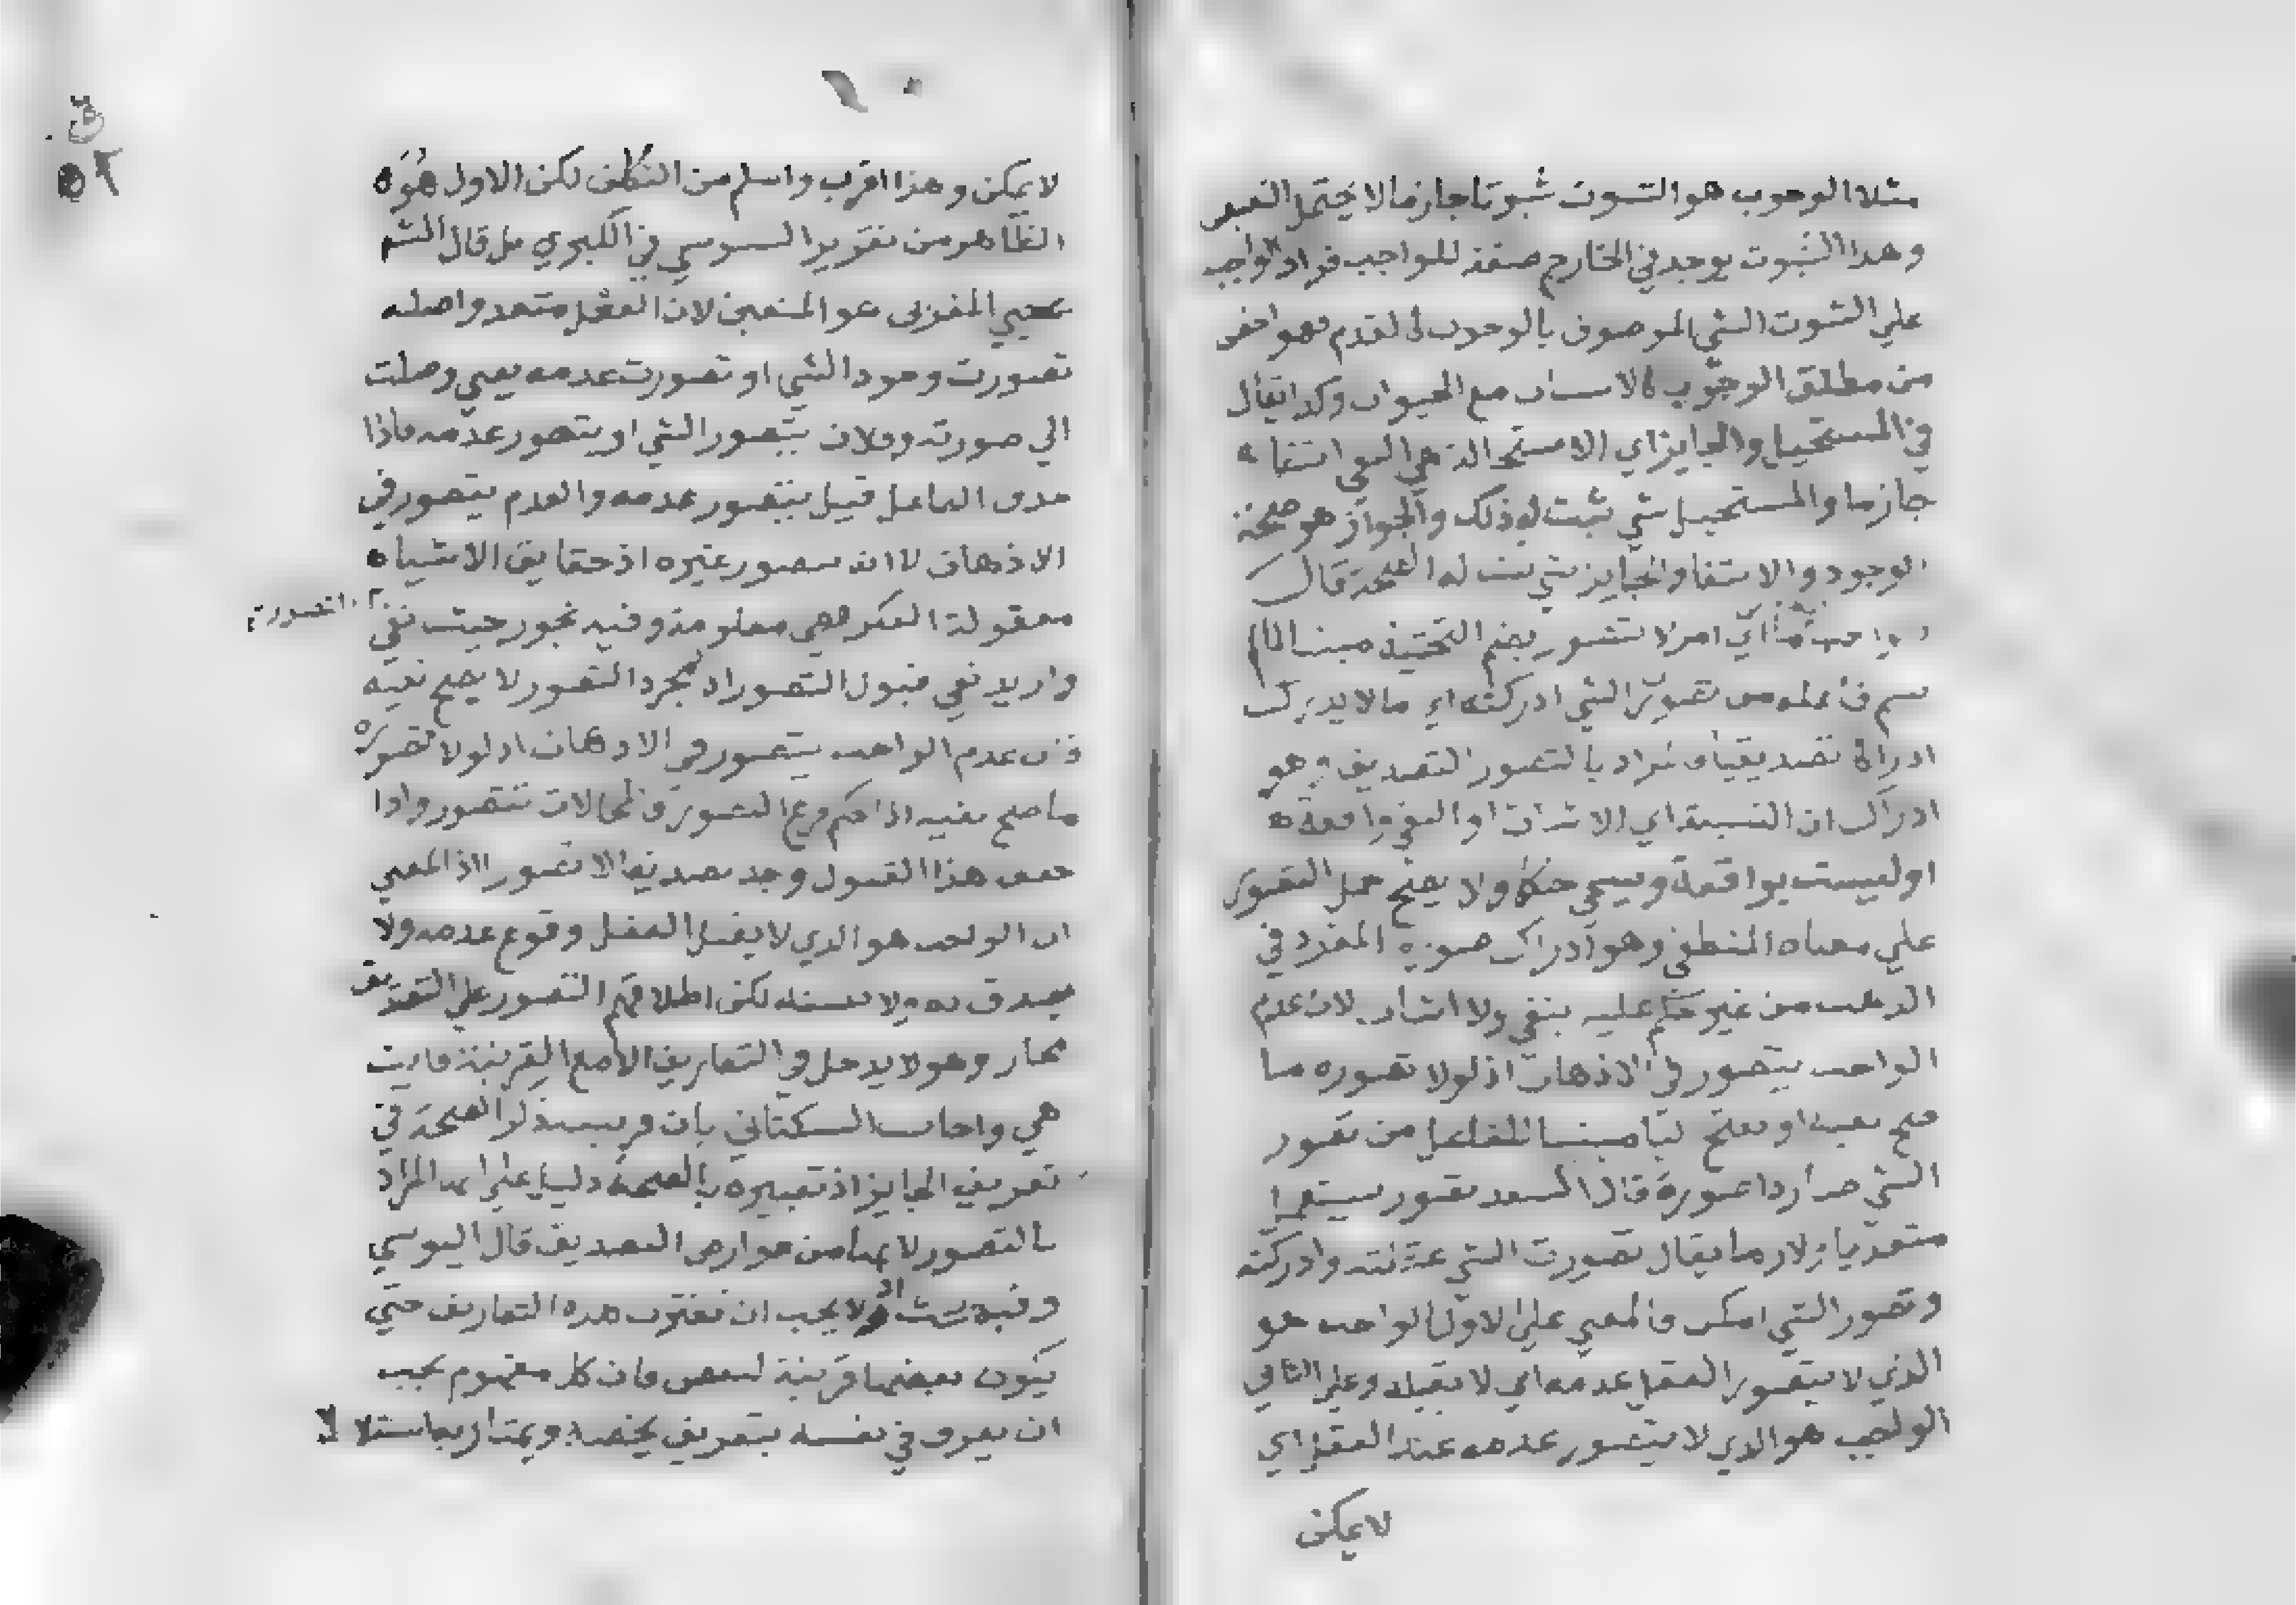 مثلا الوجوب هو الثبوت ثبوتا جازما لا يحتمل النقيض
وهذا الثبوت يوجد في الخارج صفة للواجب فزاد الواجب
علي الثبوت الشي الموصوف بالوجوب فهو اخص
من مطلق الوجوب كالانسان مع الحيوان وكذا يقال
في المستحيل والجايز اي الاستحالة هي النفي انتفاء
جازما والمستحيل شي ثبت له ذلك والجواز هو صحة
الوجود والانتفا والجايز شي ثبت له الصحة قال
الواجب ما اي امر لا يتصور بضم التحتية مبنيا لما لم
يسم فاعله من تصورت الشي ادركته اي ما لا يدرك
ادراكا تصديقيا فالمراد بالتصور التصديق وهو
ادراك ان النسبة اي الاثبات او النفي واقعة
اوليست بواقعة ويسمي حكما ولا يصح حمل التصور
علي معناه المنطقي وهو ادراك صورة المفرد في
الذهن من غير حكم عليه بنفي ولا اثبات لان عدم
الواجب يتصور في الاذهان اذ لولا تصوره ما
صح نفيه او بفتح اليا مبنيا للفاعل من تصور
الشي صار ذا صورة قال السعد تصور يستعمل
متعديا ولازما يقال تصورت الشي عقلته وادركته
وتصور الشي امكن فالمعني علي الاول الواجب هو
الذي لا يتصور العقل عدمه اي لا يقبله وعلي الثاني
الواجب هو الذي لا يتصور عدمه عند العقل اي
لا يمكن
١٠
ق
٥٢
لا يمكن وهذا اقرب واسلم من التكلف لكن الاول هو
الظاهر من تقرير السنوسي في الكبري بل قال الشيخ
يحيي المغربي هو المتعين لان الفعل متعد واصله
تصورت وجود الشي او تصورت عدمه يعني وصلت
الي صورته وفلان يتصور الشي او يتصور عدمه فاذا
حذف الفاعل قيل يتصور عدمه والعدم يتصور في
الاذهان لا انه يتصور غيره اذ حقايق الاشياء
معقولة الفكر فهي معلومة وفيه تجوز حيث نفي التصور
واريد نفي قبول التصور اذ مجرد التصور لا يصح نفيه
فان عدم الواجب يتصور في الاذهان اذ لولا تصوره
ما صح نفيه اذ الحكم فرع التصور فالمحالات تتصور واذا
حقق هذا القبول وجد تصديقا لا تصورا اذ المعني
ان الواجب هو الذي لا يقبل العقل وقوع عدمه ولا
يصدق به ولا يثبته لكن اطلاقهم التصور علي التصديق
مجاز وهو لا يدخل في التعاريف الا مع القرينة فاين
هي واجاب السكتاني بان قرينته ذكر الصحة في
تعريف الجايز اذ تعبيره بالصحة دليل علي انه المراد
بالتصور لانها من عوارض التصديق قال اليوسي
وفيه بحث اذ لا يجب ان تقترن هذه التعاريف حتي
يكون بعضها قرينة لبعض فان كل مفهوم يجب
ان يعرف في نفسه بتعريف يخصه ويمتاز به استقلالا